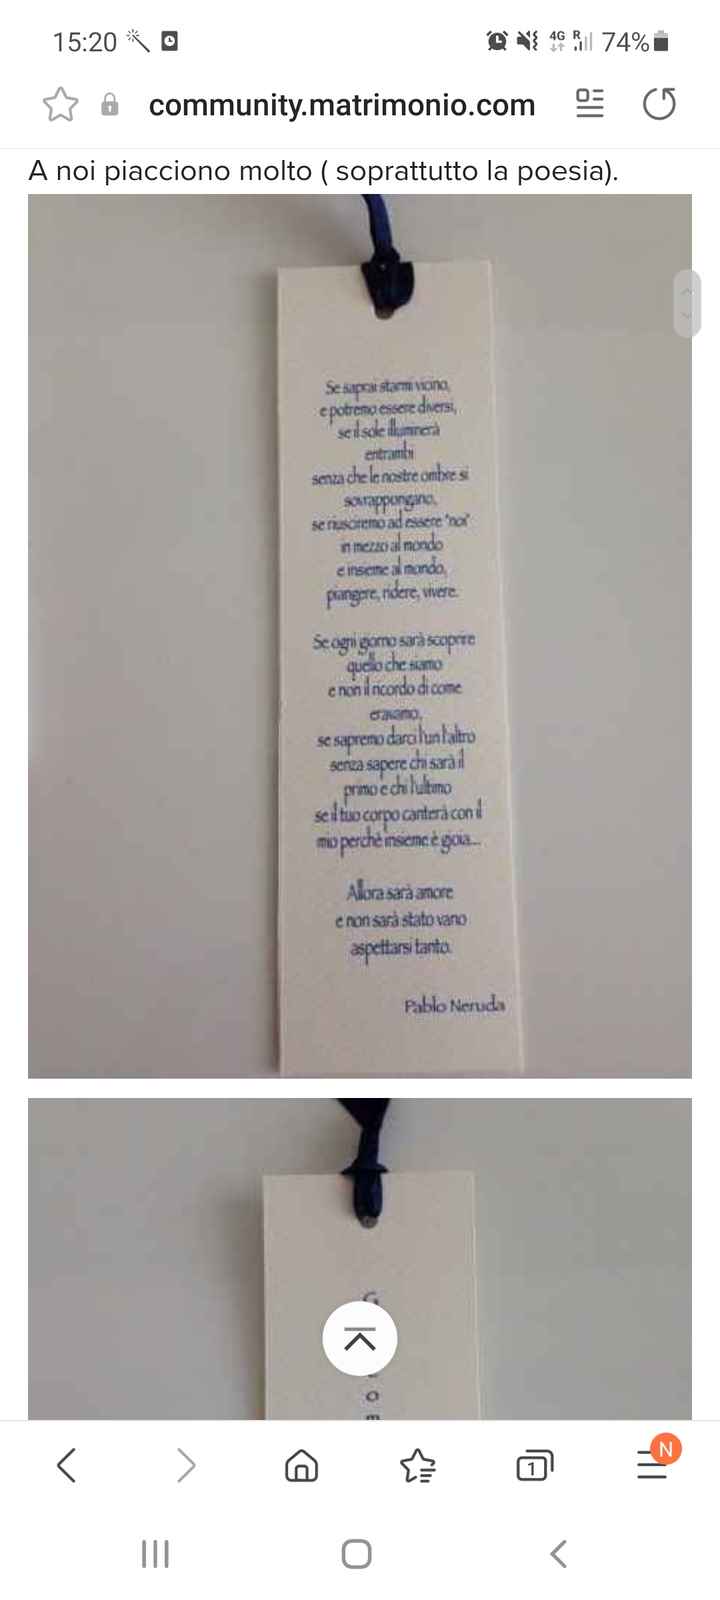 15:20
4G R 74%
community.matrimonio.com
A noi piacciono molto ( soprattutto la poesia).
Se saprai starmi vicino,
e potremo essere diversi,
se il sole illuminerà
entrambi
senza che le nostre ombre si
sovrappongano,
se riusciremo ad essere "noi"
in mezzo al mondo
e insieme al mondo,
piangere, ridere, vivere.
Se ogni giorno sarà scoprire
quello che siamo
e non il ricordo di come
eravamo,
se sapremo darci l'un l'altro
senza sapere chi sarà il
primo e chi l'ultimo
se il tuo corpo canterà con il
mio perchè insieme è gioia...
Allora sarà amore
e non sarà stato vano
aspettarsi tanto.
Pablo Neruda
G
o
m
1
N